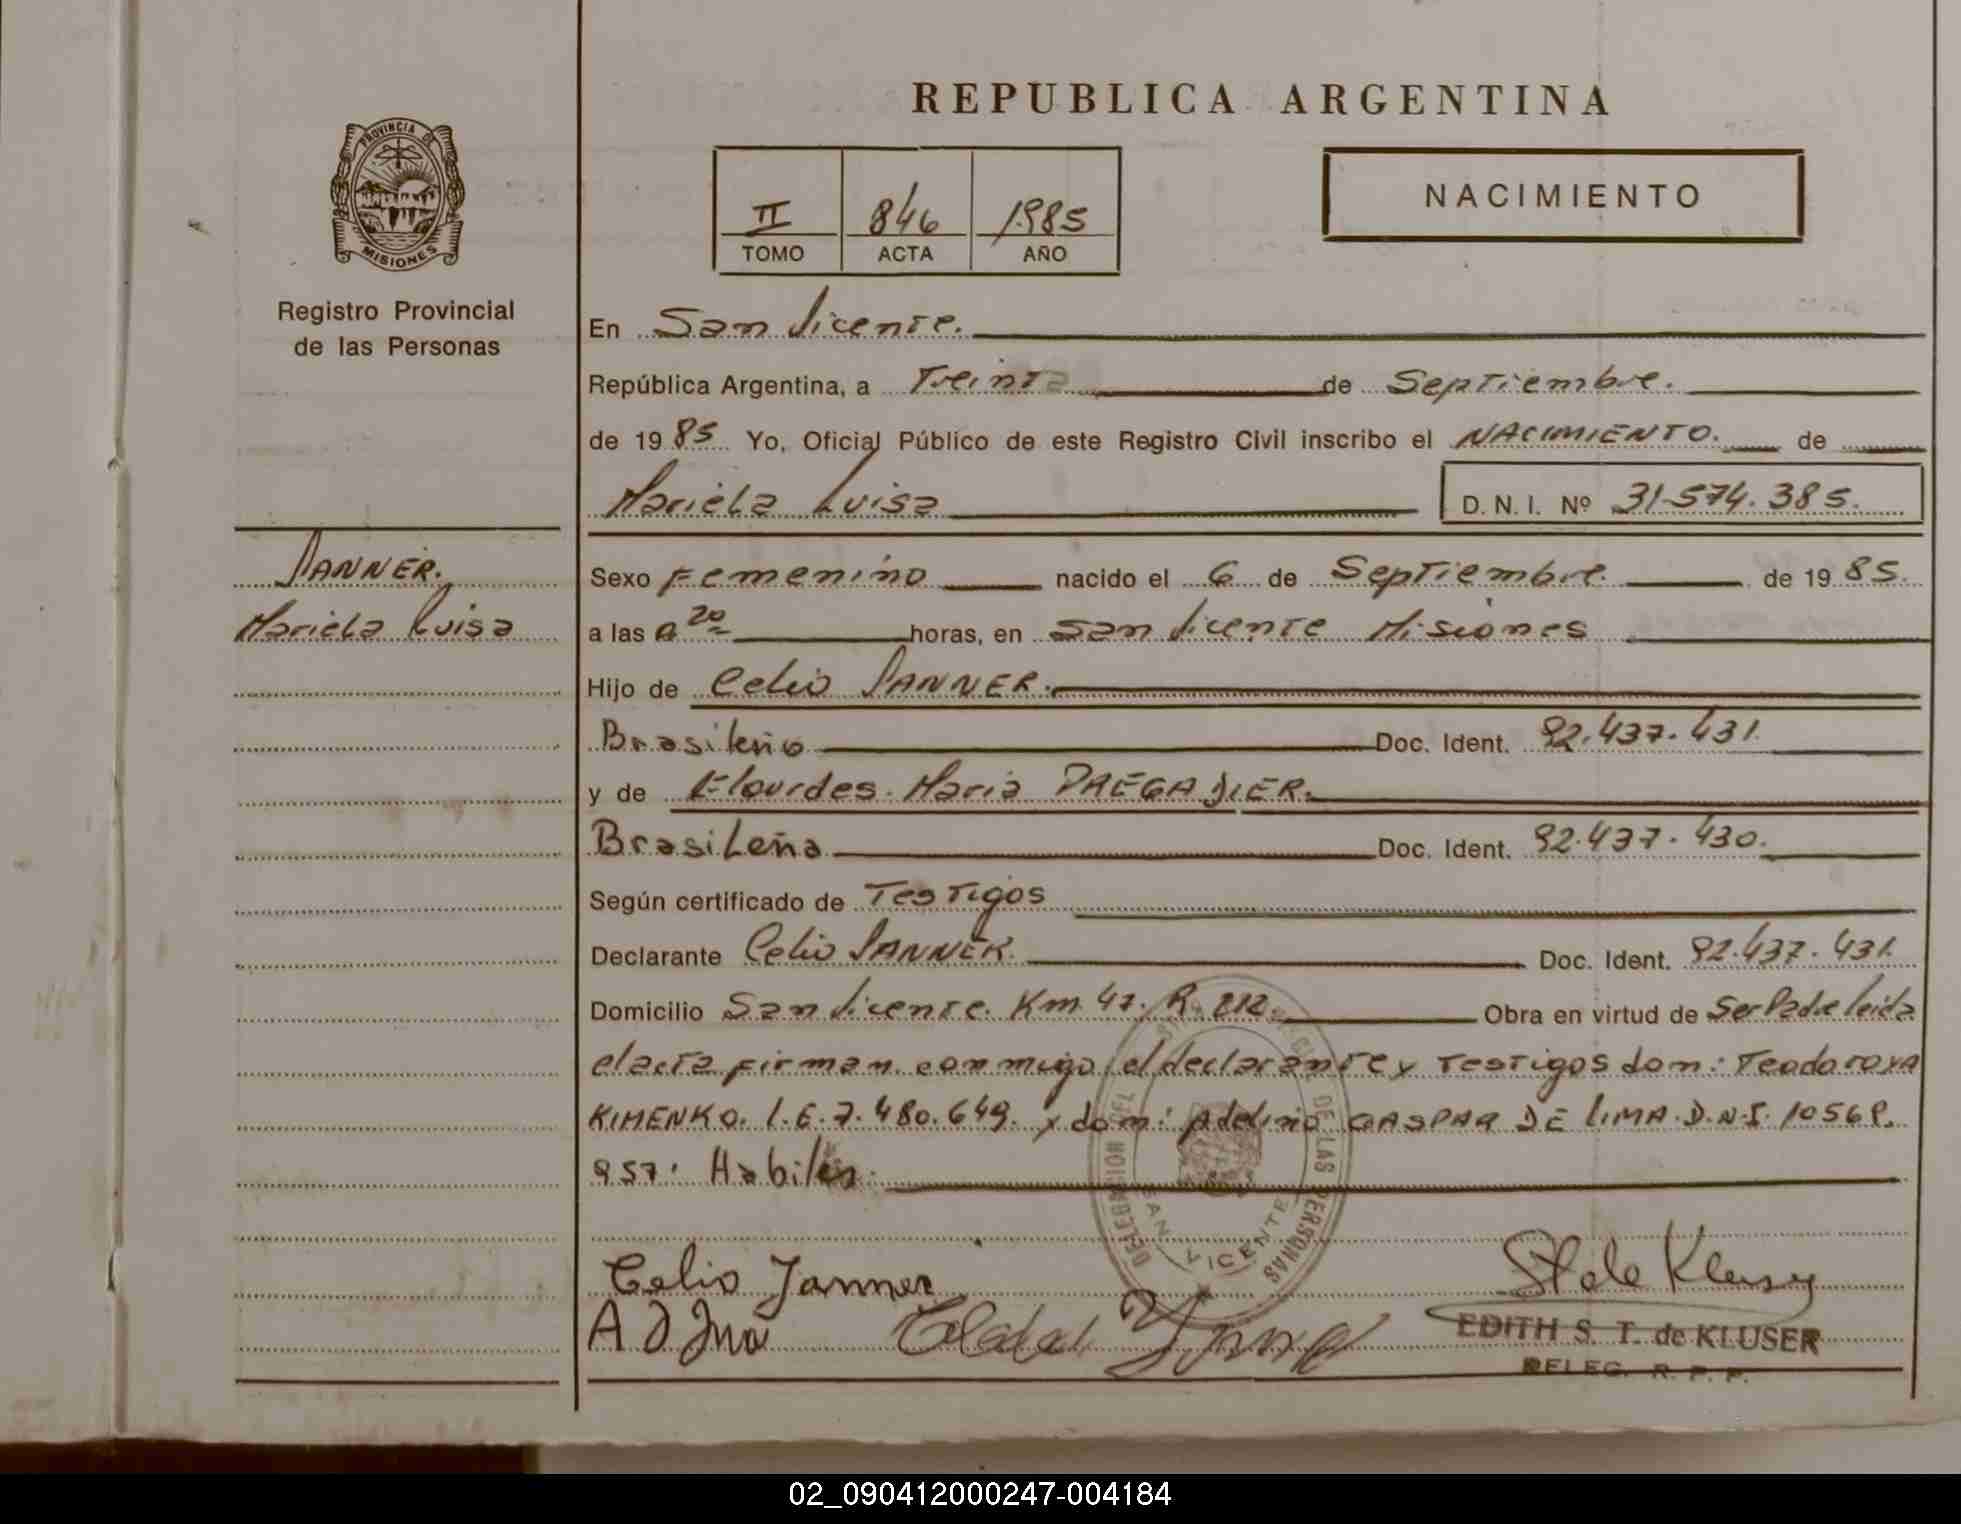 REPUBLICA ARGENTINA
PROVINCIA DE MISIONES
Registro Provincial
de las Personas
II 846 1985
TOMO ACTA AÑO
NACIMIENTO
En San Vicente.
República Argentina, a Treinta de Septiembre.
de 1985 Yo, Oficial Público de este Registro Civil inscribo el NACIMIENTO. de
Mariela Luisa D. N. I. Nº 31.574.385.
JANNER.
Mariela Luisa
Sexo Femenino nacido el 6 de Septiembre. de 1985.
a las 20 horas, en San Vicente Misiones
Hijo de Celio JANNER.
Brasileño Doc. Ident. 92.437.431
y de Lourdes Maria
Brasileña Doc. Ident. 92.437.430.
Según certificado de Testigos
Declarante Celio JANNER. Doc. Ident. 92.437.431.
Domicilio San Vicente. Km 47. R. 212. Obra en virtud de Ser Padre leida
el acta firman conmigo el declarante y Testigos don: Teodoro YA
KIMENKO. L.E.7.480.649. y don: Adelino GASPAR DE LIMA. D.N.I. 10568.
957. Habiles.
DELEGACION DEL DE LAS PERSONAS
SAN VICENTE
Celio Janner
St de Kluser
EDITH S. T. de KLUSER
DELEG. R. P. P.
02_090412000247-004184